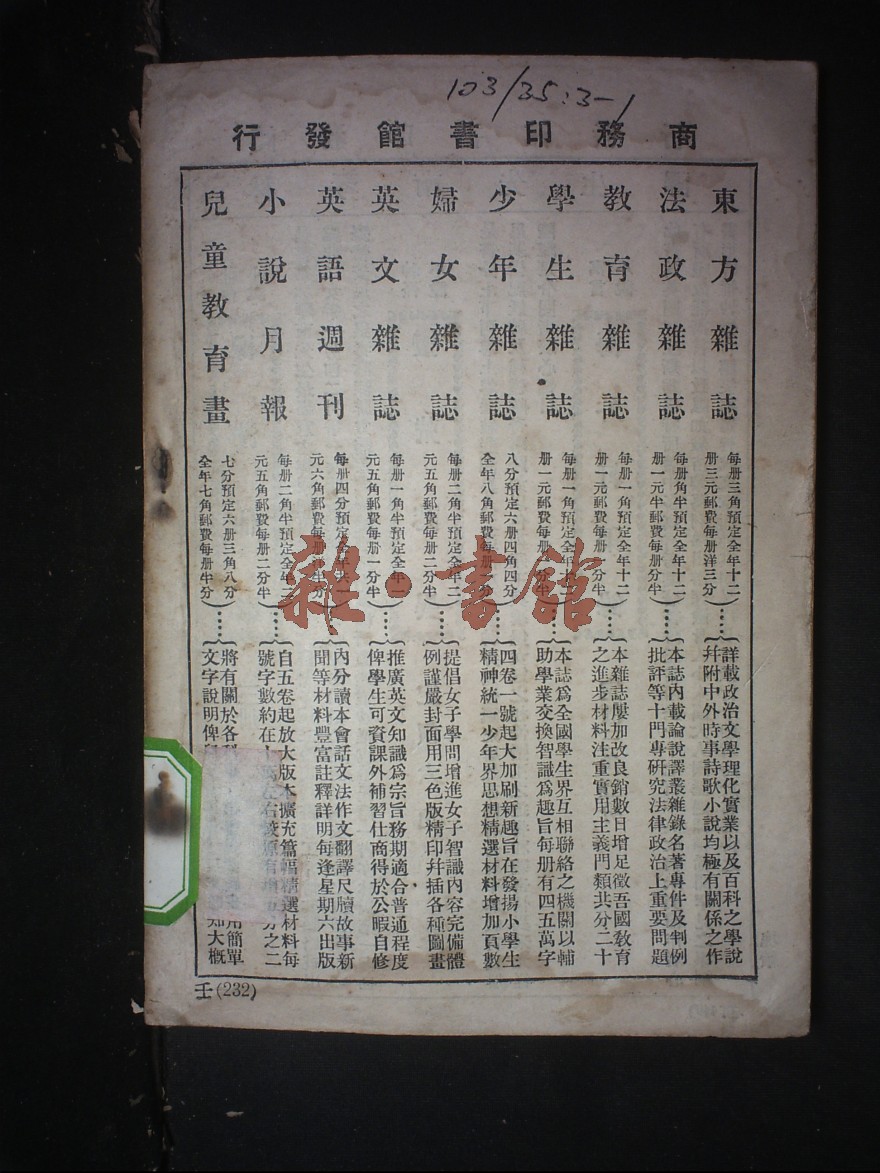 103/35:3-1
商務印書館發行
東方雜誌
每册三角預定全年十二
册三元郵費每册洋三分
詳載政治文學理化實業以及百科之學說
幷附中外時事詩歌小說均極有關係之作
法政雜誌
每册角半預定全年十二
册一元半郵費每册分半
本誌內載論說譯叢雜錄名著專件及判例
批評等十門專研究法律政治上重要問題
教育雜誌
每册一角預定全年十二
册一元郵費每册一分半
本雜誌屢加改良銷數日增足徵吾國敎育
之進步材料注重實用主義門類共分二十
學生雜誌
每册一角預定全年十二
册一元郵費每册一分半
本誌爲全國學生界互相聯絡之機關以輔
助學業交換智識爲趣旨每册有四五萬字
少年雜誌
八分預定六册四角四分
全年八角郵費每册一分
四卷一號起大加刷新趣旨在發揚小學生
精神統一少年界思想精選材料增加頁數
婦女雜誌
每册二角半預定全年二
元五角郵費每册二分半
提倡女子學問增進女子智識內容完備體
例謹嚴封面用三色版精印幷插各種圖畫
英文雜誌
每册一角半預定全年一
元五角郵費每册一分半
推廣英文知識爲宗旨務期適合普通程度
俾學生可資課外補習仕商得於公暇自修
英語週刊
每册四分預定全年共一
元六角郵費每册半分
內分讀本會話文法作文翻譯尺牘故事新
聞等材料豐富註釋詳明每逢星期六出版
小說月報
每册二角半預定全年二
元五角郵費每册二分半
自五卷起放大版本擴充篇幅精選材料每
號字數約在左右較原有增五分之二
兒童教育畫
七分預定六册三角八分
全年七角郵費每册半分
將有關於各科用簡單
文字說明俾知大概
壬(232)
雜·書館